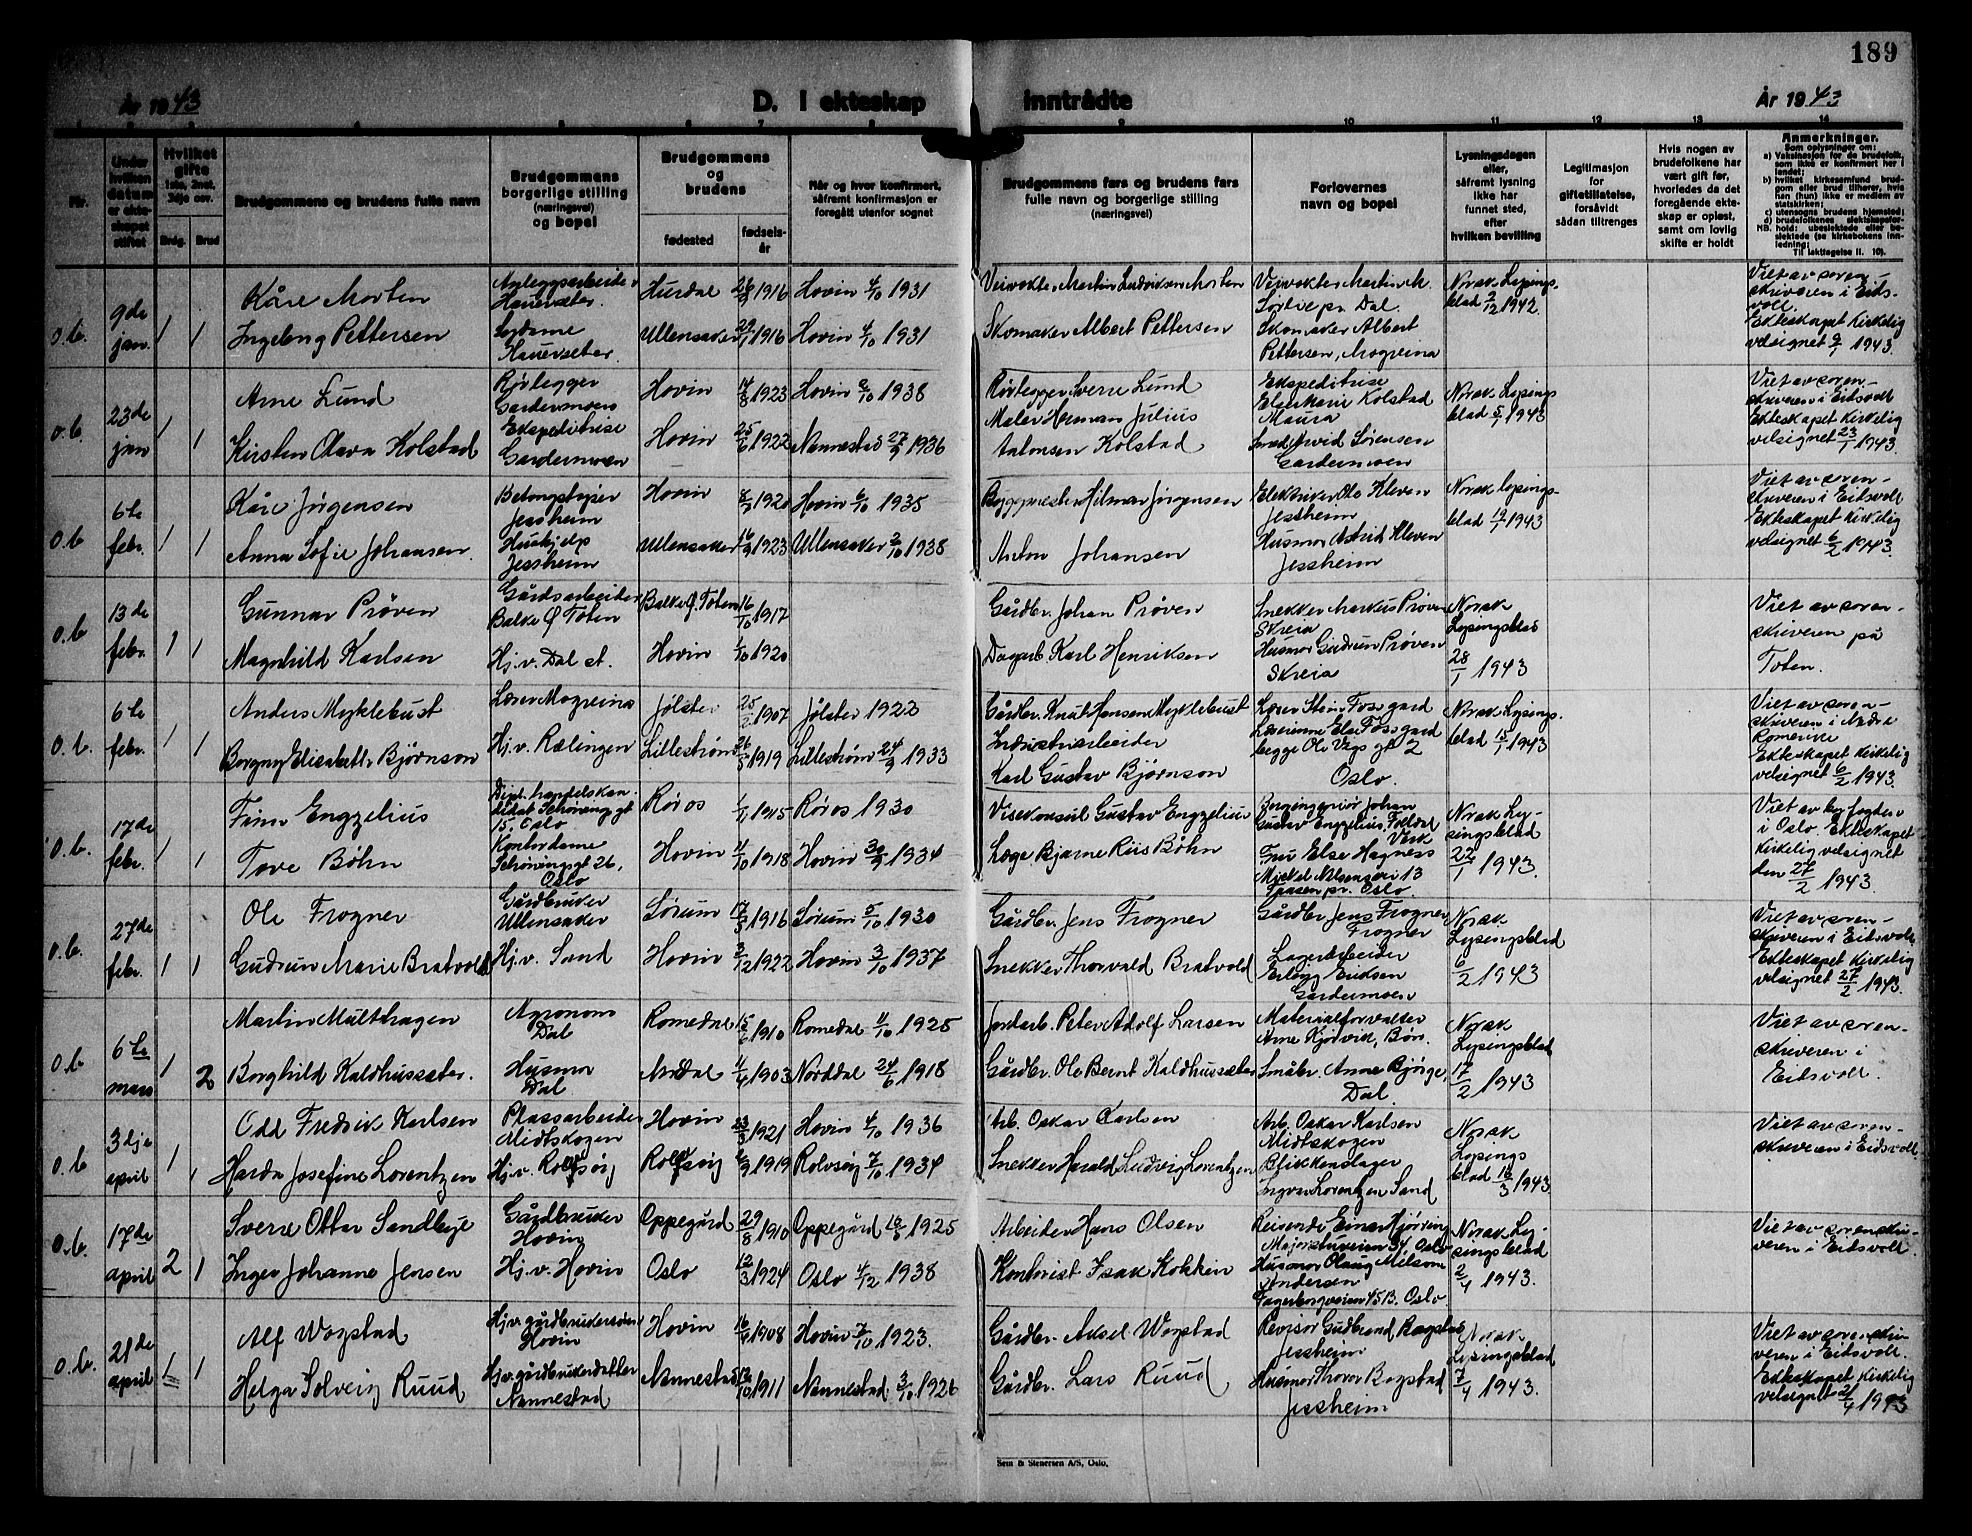 189
År 1943
D. I ekteskap
inntrådte
År 1943
Nr.
Under hvilken datum er ekteskapet stiftet
Hvilket gifte
1ste, 2net, 3dje osv.
Brdg.
Brud
Brudgommens og brudens fulle navn
Brudgommens borgerlige stilling (næringsvei) og bopel
Brudgommens og brudens
fødested
fødselsår
Når og hvor konfirmert, såfremt konfirmasjon er foregått utenfor sognet
Brudgommens fars og brudens fars fulle navn og borgerlige stilling (næringsvei)
Forlovernes navn og bopel
Lysningsdagen eller, såfremt lysning ikke har funnet sted, efter hvilken bevilling
Legitimasjon for giftetillatelse, forsåvidt sådan tiltrenges
Hvis nogen av brudefolkene har vært gift før, hvorledes da det foregående ekteskap er opløst, samt om lovlig skifte er holdt
Anmerkninger.
Som oplysninger om:
a) Vaksinasjon for de brudefolk, som ikke er konfirmert her i landet;
b) hvilket kirkesamfund brudgom eller brud tilhører, hvis han (hun) ikke er medlem av statskirken;
c) utensogns brudens hjemsted;
d) brudefolkenes slektskapsforhold: ubeslektede eller beslektede (se kirkebokens innledning;
NB.
Til iakttagelse II. 10).
o.b. 9de jan. 1 1
Kåre Morten
Anleggsarbeider
Hurdal 1916 Hovin 4/10 1931
Veivokter Martin Ludviksen Morten
Veivokter Martin M.
Dal.
Norsk Lysingsblad 9/12 1942.
Viet av sorenskriveren i Eidsvoll.
Ekteskapet kirkelig velsignet 9/1 1943.
Ingeborg Pettersen
Ullensaker 1916 Hovin 4/10 1931
Skomaker Albert Pettersen
Skomaker Albert Pettersen, Mogreina
o.b. 23de jan 1 1
Arne Lund
Rørlegger
Gardermoen
Hovin 14/8 1923 Hovin 1938
Rørlegger Sverre Lund
Ekspeditrise
Kolstad
Maura
Norsk Lysingsblad 5/1 1943
Viet av sorenskriveren i Eidsvoll
Ekteskapet kirkelig velsignet 23/1 1943.
Kirsten Olava Kolstad
Ekspeditrise
Gardermoen
Hovin 25/6 1922 Nannestad 27/9 1936
Maler Herman Julius
Antonsen Kolstad
Arvid Sørensen
Gardermoen
o.b 6te febr. 1 1
Kåre Jørgensen
Jessheim
Hovin 1920 Hovin 6/10 1935
Byggmester Hilmar Jørgensen
Elektriker Ole Kleven
Jessheim
Norsk lysingsblad 19/1 1943
Viet av sorenskriveren i Eidsvoll
Ekteskapet kirkelig velsignet 6/2 1943.
Anna Sofie Johansen.
Hushjelp
Jessheim
Ullensaker 16/9 1923 Ullensaker 2/10 1938
Anton Johansen
Husmor Astrid Kleven
Jessheim
o.b 13de febr. 1 1
Gunnar Prøven
Gårdsarbeider
Balke Ø. Toten
Balke Ø. Toten 16/10 1917
Gårdbr. Johan Prøven
Snekker Markus Prøven
Skreia
Norsk Lysingsblad 28/1 1943
Viet av sorenskriveren på Toten.
Magnhild Karlsen
Hj.v. Dal st.
Hovin 1/10 1920
Dagarb. Karl Henriksen
Husmor Gudrun Prøven
Skreia
o.b. 6te febr. 1 1
Anders Myklebust
Lærer Mogreina
Jølster 1907 Jølster 1922
Gårdbr. Knut Hansen Myklebust
Lærer Stein Fossgard
Lærerinne Else Fossgard
begge Ole Vigs gt 2
Oslo.
Norsk Lysingsblad 15/1 1943
Viet av sorenskriveren i Nedre Romerike
Ekteskapet kirkelig velsignet 6/2 1943.
Borgny Elisabeth Bjørnson
Hj.v. Rælingen
Lillestrøm 1919 Lillestrøm 24/9 1933
Industriarbeider
Karl Gustav Bjørnson
o.b. 17de febr. 1 1
Finn Engzelius
Dipl. handelskandidat Schøningsgt 15, Oslo
Røros 1915 Røros 1930
Visekonsul Gustav Engzelius
Bergingeniør Johan Gustav Engzelius, Folldal Verk
Norsk Lysingsblad 22/1 1943.
Viet av byfogden i Oslo. Ekteskapet kirkelig velsignet den 27/2 1943.
Tove Bøhn
Kontordame
Schøningsgt 26, Oslo
Hovin 11/10 1918 Hovin 30/9 1934
Læge Bjarne Riis Bøhn
Fru Else Hagness
13
Oslo
o.b. 27de febr. 1 1
Ole Frogner
Gårdbruker
Ullensaker
Sørum 1916 Sørum 5/10 1930
Gårdbr. Jens Frogner
Gårdbr. Jens Frogner
Frogner
Norsk Lysingsblad 6/2 1943
Viet av sorenskriveren i Eidsvoll
Ekteskapet kirkelig velsignet 27/2 1943.
Gudrun Marie Bratvold
Hj.v. Sand
Hovin 3/12 1922 Hovin 3/10 1937
Snekker Thorvald Bratvold
Lagerarbeider
Erling Eriksen
Gardermoen
o.b 6te mars 1 2
Martin Multhagen
Agronom
Dal
Romedal 15/6 1910 Romedal 11/10 1925
Jordarb. Peter Adolf Larsen
Materialforvalter
Arne Kjörvik, Bøn.
Norsk Lysingsblad 17/2 1943
Viet av sorenskriveren i Eidsvoll.
Borghild Kaldhussæter.
Husmor
Dal
Norddal 1/4 1903 Norddal 24/6 1918
Gårdbr. Ole Bernt Kaldhussæter
Småbr. Anne Bjørge
Dal.
o.b 3dje april 1 1
Odd Fredrik Karlsen
Plassarbeider
Midtskogen
Hovin 1921 Hovin 4/10 1936
Arb. Oskar Karlsen
Arb. Oskar Karlsen
Midtskogen
Norsk Lysingsblad 16/3 1943
Viet av sorenskriveren i Eidsvoll
Josefine Lorentzen
Hj.v. Rolfsøy
Rolfsøy 1919 Rolvsøy 7/10 1934
Snekker Harald Ludvig Lorentzen
Blikkenslager
Ingvar Lorentzen Sand
o.b. 17de april 2 1
Sverre Ottar Sandbye
Gårdbruker
Hovin
Oppegård 29/8 1910 Oppegård 1925
Arbeider Hans Olsen
Reisende Einar Hjørring
Majorstuveien 34 Oslo
Norsk Lysingsblad 2/4 1943.
Viet av sorenskriveren i Eidsvoll.
Inger Johanne Jensen
Hj.v. Hovin
Oslo 12/3 1924 Oslo 4/12 1938
Kontorist Isak Kokkin
Husmor Olaug Nilson Andersen
Fagerborgveien 45B. Oslo
o.b. 21de april 1 1
Alf Wogstad
Hj.v. gårdbrukersønn
Hovin
Hovin 16/4 1908 Hovin 7/10 1923.
Gårdbr. Aksel Wogstad
Revisor Gudbrand Rogstad
Jessheim
Norsk Lysingsblad 7/4 1943.
Viet av sorenskriveren i Eidsvoll.
Ekteskapet kirkelig velsignet 21/4 1943
Helga Solveig Ruud
Hj.v. gårdbrukerdatter
Nannestad
Nannestad 1911 Nannestad. 3/10 1926
Gårdbr. Lars Ruud
Husmor Thora Rogstad
Jessheim
Sem & Stenersen A/S, Oslo.